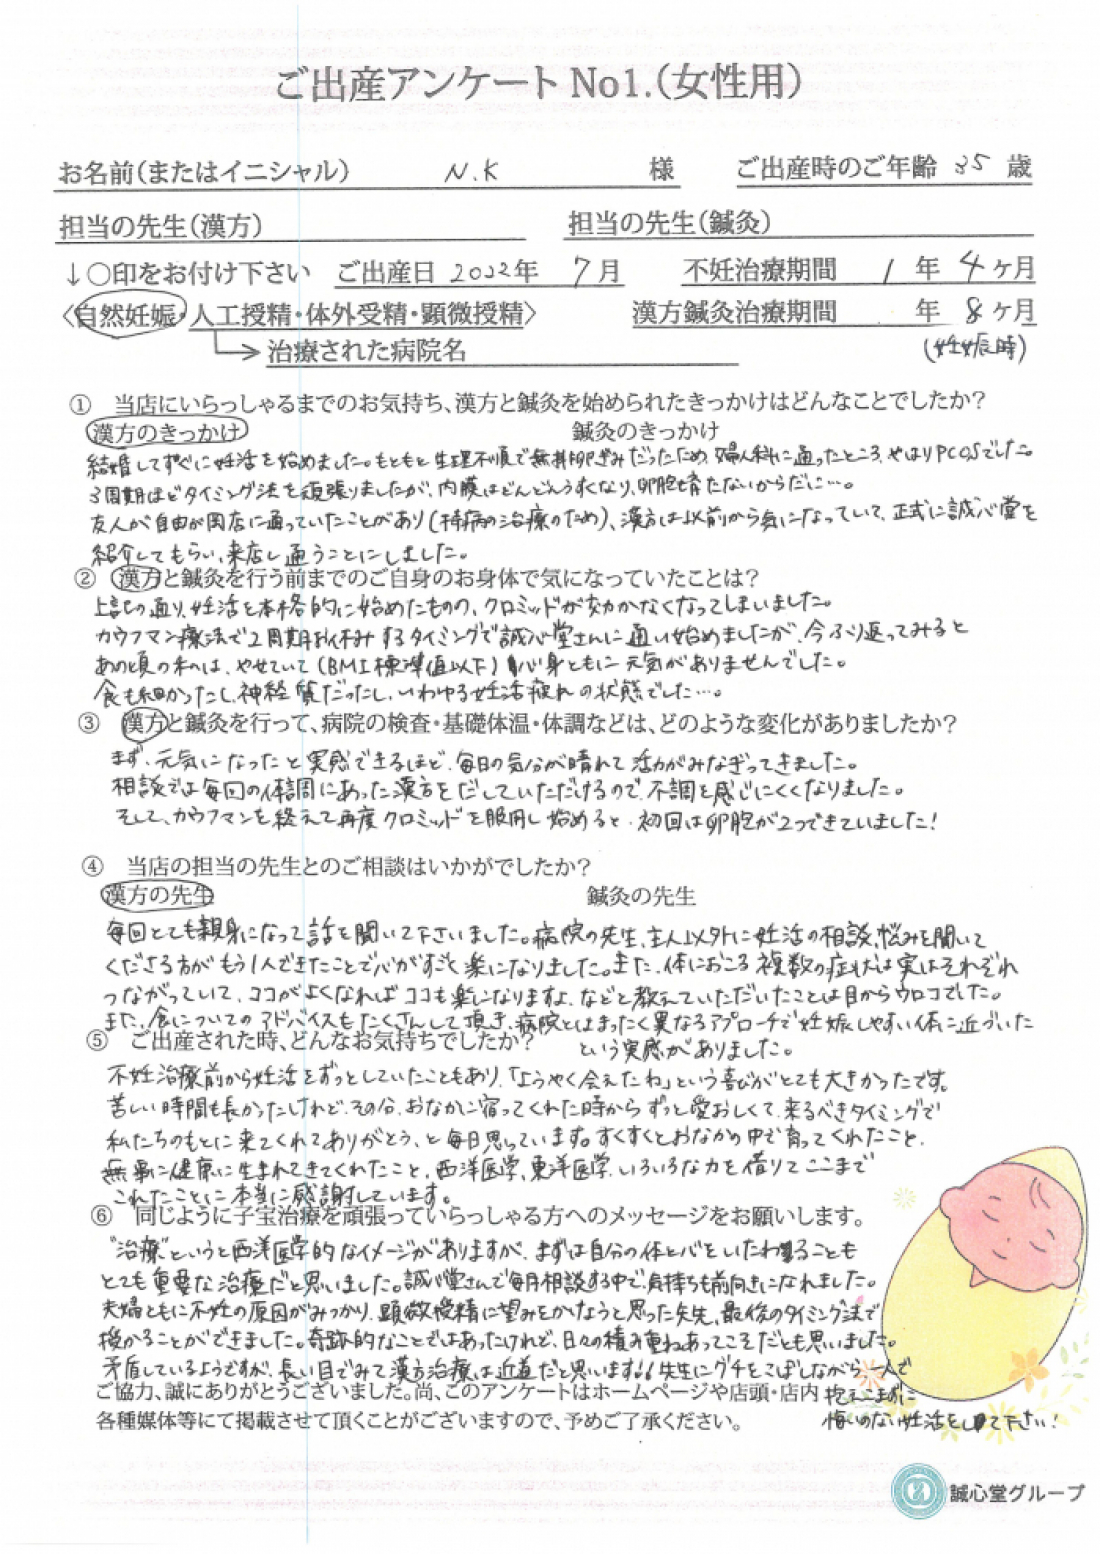 ご出産アンケートNo1（女性用）
お名前（またはイニシャル） N.K 様 ご出産時のご年齢 35 歳
担当の先生（漢方） 担当の先生（鍼灸）
↓○印をお付け下さい ご出産日 2022年 7月 不妊治療期間 1年 4ヶ月
〈自然妊娠・人工授精・体外受精・顕微授精〉 漢方鍼灸治療期間 年 8ヶ月
→治療された病院名 (妊娠時)
① 当店にいらっしゃるまでのお気持ち、漢方と鍼灸を始められたきっかけはどんなことでしたか？
漢方のきっかけ 鍼灸のきっかけ
結婚してすぐに妊活を始めました。もともと生理不順で無排卵ぎみだったため、婦人科に通ったところ、やはりPCOSでした。
3周期ほどタイミング法を頑張りましたが、内膜はどんどんうすくなり、卵胞も育たないからだに…。
友人が自由が岡店に通っていたことがあり(持病の治療のため)、漢方は以前から気になっていて、正式に誠心堂を
紹介してもらい、来店し通うことにしました。
② 漢方と鍼灸を行う前までのご自身のお身体で気になっていたことは？
上記の通り、妊活を本格的に始めたものの、クロミッドが効かなくなってしまいました。
カウフマン療法で2周期お休みするタイミングで誠心堂さんに通い始めましたが、今ふり返ってみると
あの頃の私は、やせていて(BMI標準値以下)心身ともに元気がありませんでした。
食も細かったし、神経質だったし、いわゆる妊活疲れの状態でした…。
③ 漢方と鍼灸を行って、病院の検査・基礎体温・体調などは、どのような変化がありましたか？
まず、元気になったと実感できるほど、毎日の気分が晴れて活力がみなぎってきました。
相談では毎回の体調にあった漢方をだしていただけるので、不調を感じにくくなりました。
そして、カウフマンを終えて再度クロミッドを服用し始めると、初回は卵胞が2つできていました！
④ 当店の担当の先生とのご相談はいかがでしたか？
漢方の先生 鍼灸の先生
毎回とても親身になって話を聞いて下さいました。病院の先生、主人以外に妊活の相談、悩みを聞いて
くださる方がもう1人できたことで心がすごく楽になりました。また、体におこる複数の症状は実はそれぞれ
つながっていて、ココがよくなればココも楽になりますよ、などと教えていただいたことは目からウロコでした。
また、食についてのアドバイスもたくさんして頂き、病院とはまったく異なるアプローチで妊娠しやすい体に近づいた
という実感がありました。
⑤ ご出産された時、どんなお気持ちでしたか？
不妊治療前から妊活をずっとしていたこともあり、「ようやく会えたね」という喜びがとても大きかったです。
苦しい時間も長かったけれど、その分、おなかに宿ってくれた時からずっと愛おしくて、来るべきタイミングで
私たちのもとに来てくれてありがとう、と毎日思っています。すくすくとおなかの中で育ってくれたこと、
無事に健康に生まれてきてくれたこと、西洋医学、東洋医学、いろいろな力を借りてここまで
これたことに本当に感謝しています。
⑥ 同じように子宝治療を頑張っていらっしゃる方へのメッセージをお願いします。
"治療"というと西洋医学的なイメージがありますが、まずは自分の体と心をいたわることも
とても重要な治療だと思いました。誠心堂さんで毎月相談する中で気持ちも前向きになれました。
夫婦ともに不妊の原因がみつかり、顕微授精に望みをかけようと思った矢先、最後のタイミング法で
授かることができました。奇跡的なことではあったけれど、日々の積み重ねあってこそだとも思いました。
矛盾しているようですが、長い目でみて漢方治療は近道だと思います!! 先生にグチをこぼしながら、一人で
抱えこまずに
悔いのない妊活をして下さい！
ご協力、誠にありがとうございました。尚、このアンケートはホームページや店頭・店内
各種媒体等にて掲載させて頂くことがございますので、予めご了承ください。
誠心堂グループ